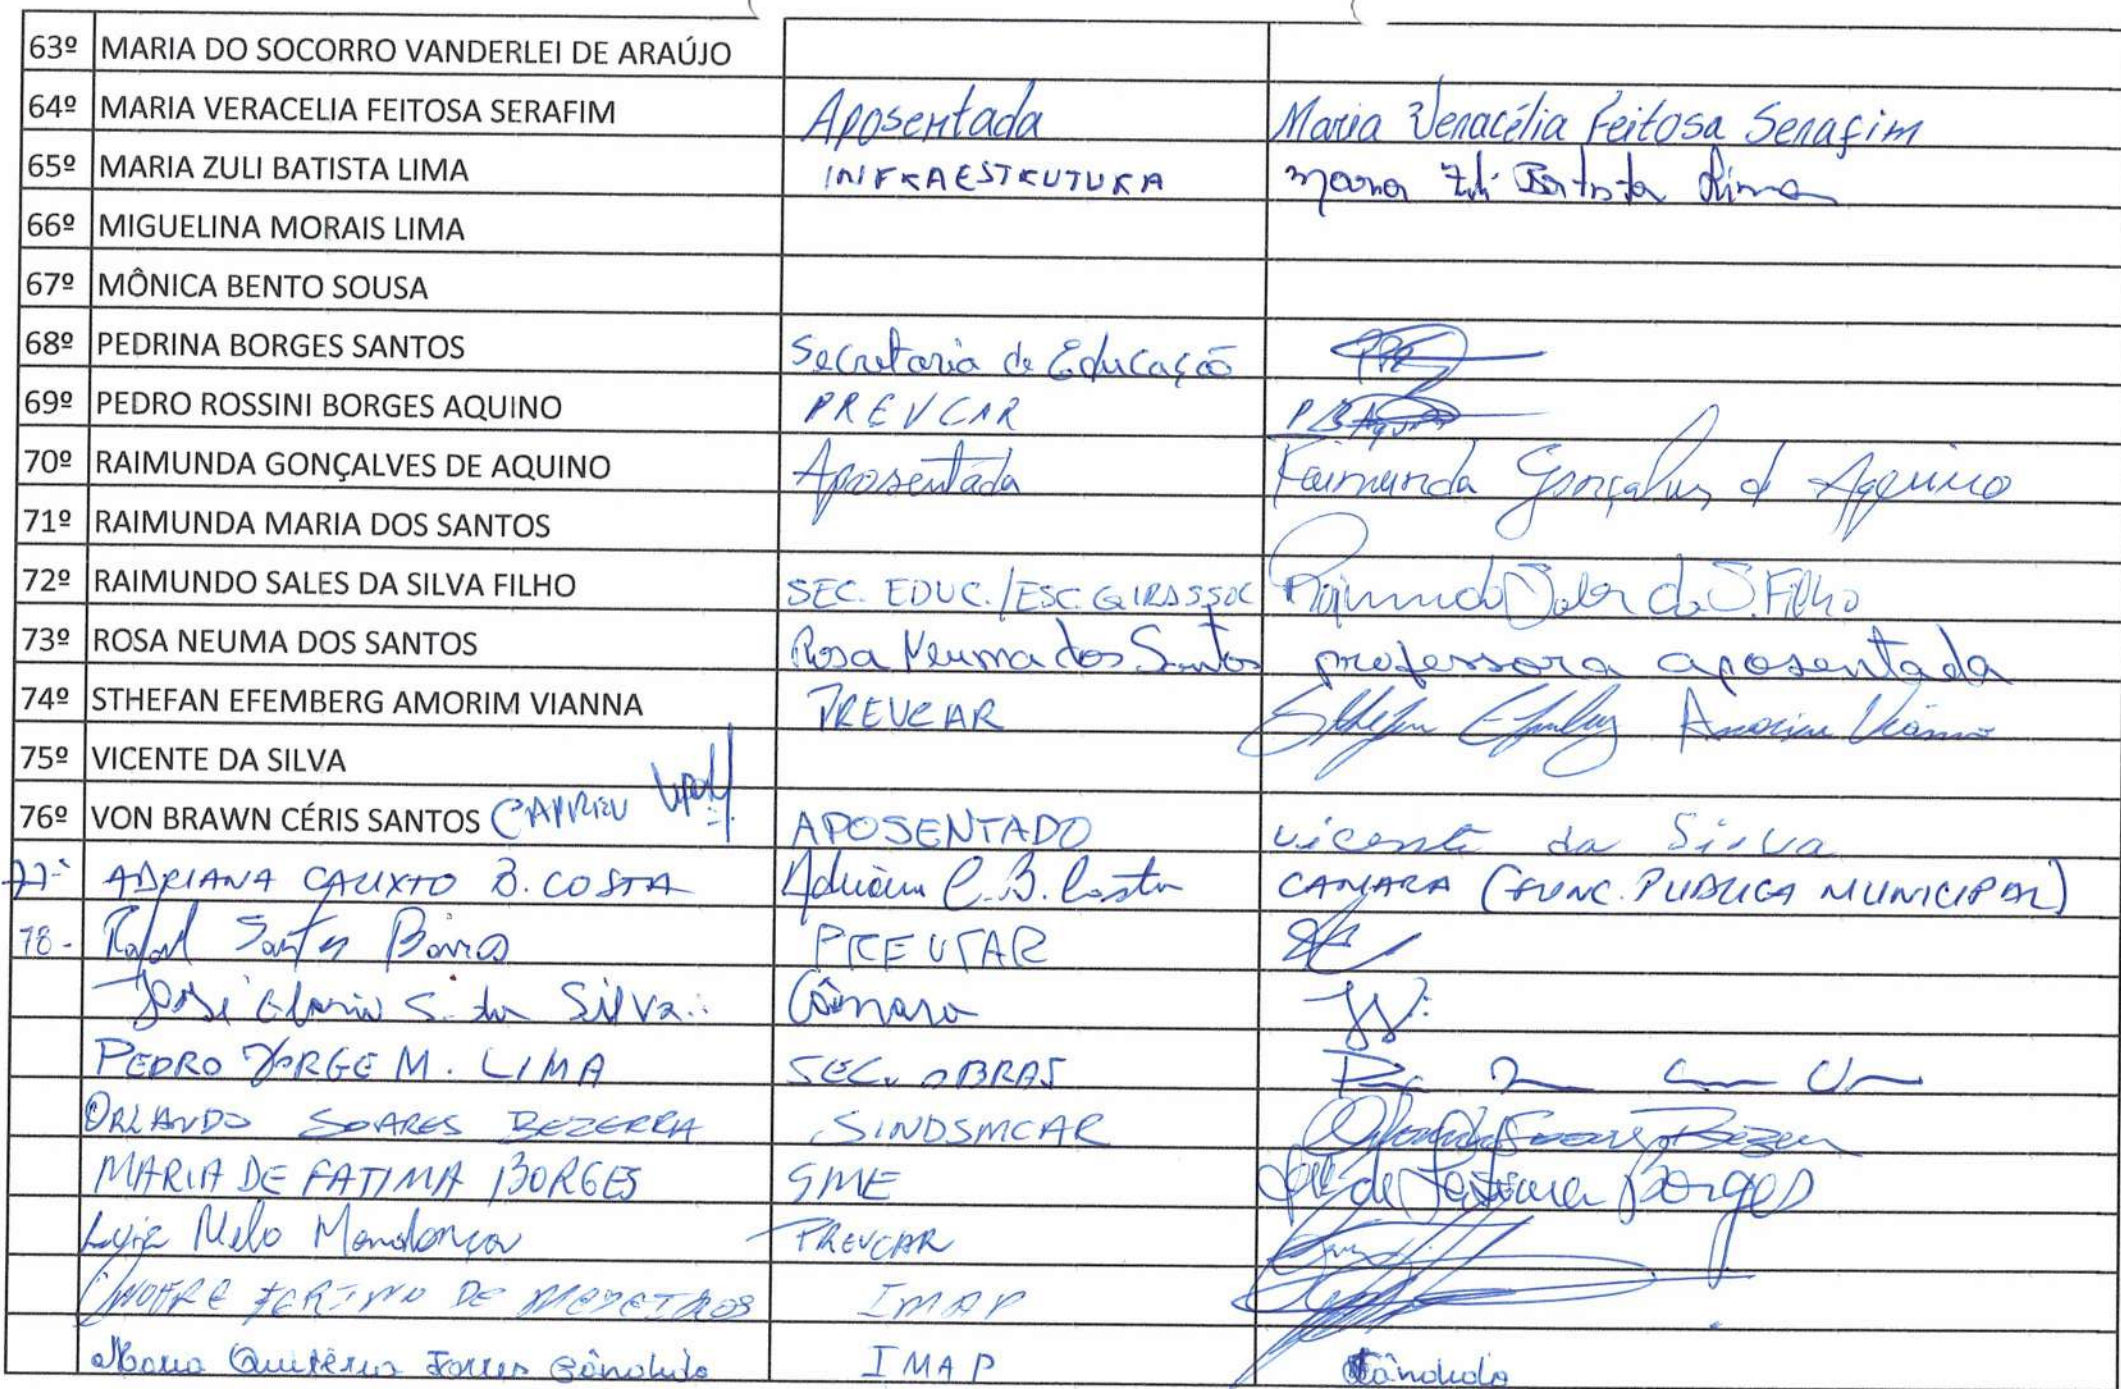 63º MARIA DO SOCORRO VANDERLEI DE ARAÚJO
64º MARIA VERACELIA FEITOSA SERAFIM Aposentada Maria Veracélia Feitosa Serafim
65º MARIA ZULI BATISTA LIMA INFRAESTRUTURA Maria Zuli Batista Lima
66º MIGUELINA MORAIS LIMA
67º MÔNICA BENTO SOUSA
68º PEDRINA BORGES SANTOS Secretaria de Educação
69º PEDRO ROSSINI BORGES AQUINO PREVCAR PBAquino
70º RAIMUNDA GONÇALVES DE AQUINO Aposentada Raimunda Gonçalves d Aquino
71º RAIMUNDA MARIA DOS SANTOS
72º RAIMUNDO SALES DA SILVA FILHO SEC. EDUC./ESC. GIRASSOL Raimundo Sales da S. Filho
73º ROSA NEUMA DOS SANTOS Rosa Neuma dos Santos professora aposentada
74º STHEFAN EFEMBERG AMORIM VIANNA PREVCAR Sthefan Efemberg Amorim Vianna
75º VICENTE DA SILVA
76º VON BRAWN CÉRIS SANTOS APOSENTADO vicente da Silva
77- ADRIANA CALIXTO B. COSTA Adriana C. B. Costa CAMARA (FUNC. PUBLICA MUNICIPAL)
78- Rafael Santos Barros PREVCAR
José S. da Silva Câmara
PEDRO JORGE M. LIMA SEC. OBRAS
ORLANDO SOARES BEZERRA SINDSMCAR Orlando Soares Bezerra
MARIA DE FATIMA BORGES SME de Fatima Borges
Luiz Melo Mendonça PREVCAR
DE MEDEIROS IMAP
Maria Quitéria Torres Cândido IMAP Cândido